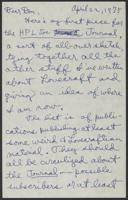 Dear Ben,
April 22, 1975
Here's my first piece for
the HPL Journal,
a sort of all-over sketch
tying together all the
other stuff I've written
about Lovecraft and
giving an idea of where
I am now.
The list is of
publications publishing at least
some weird & Lovecraftian
material. They should
all be circularized about
the Journal — possible
subscribers or at least